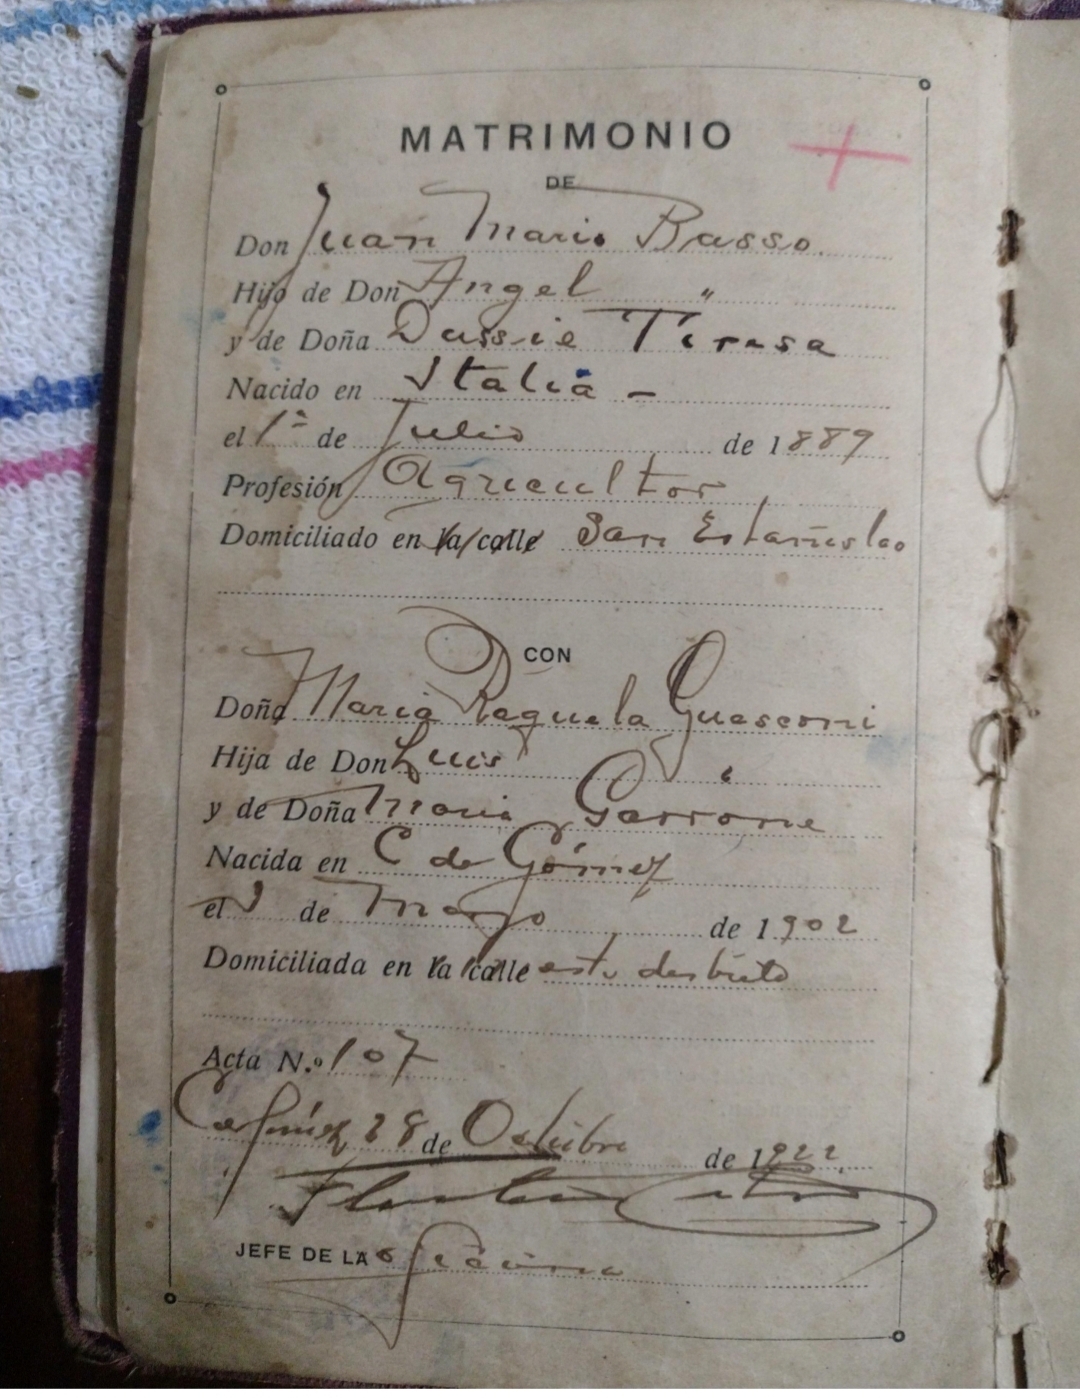 MATRIMONIO
DE
Don Juan Mario Basso
Hijo de Don Angel "
y de Doña Dassie Teresa
Nacido en Italia -
el 1º de Julio de 1889
Profesión Agricultor
Domiciliado en la calle San Estanislao
CON
Doña Maria Raquela Guasconi
Hija de Don Luis "
y de Doña Maria Garrone
Nacida en C de Gómez
el de Mayo de 1902
Domiciliada en la calle este distrito
Acta N.º 107
Ca Gómez 28 de Octubre de 1922.
JEFE DE LA Oficina